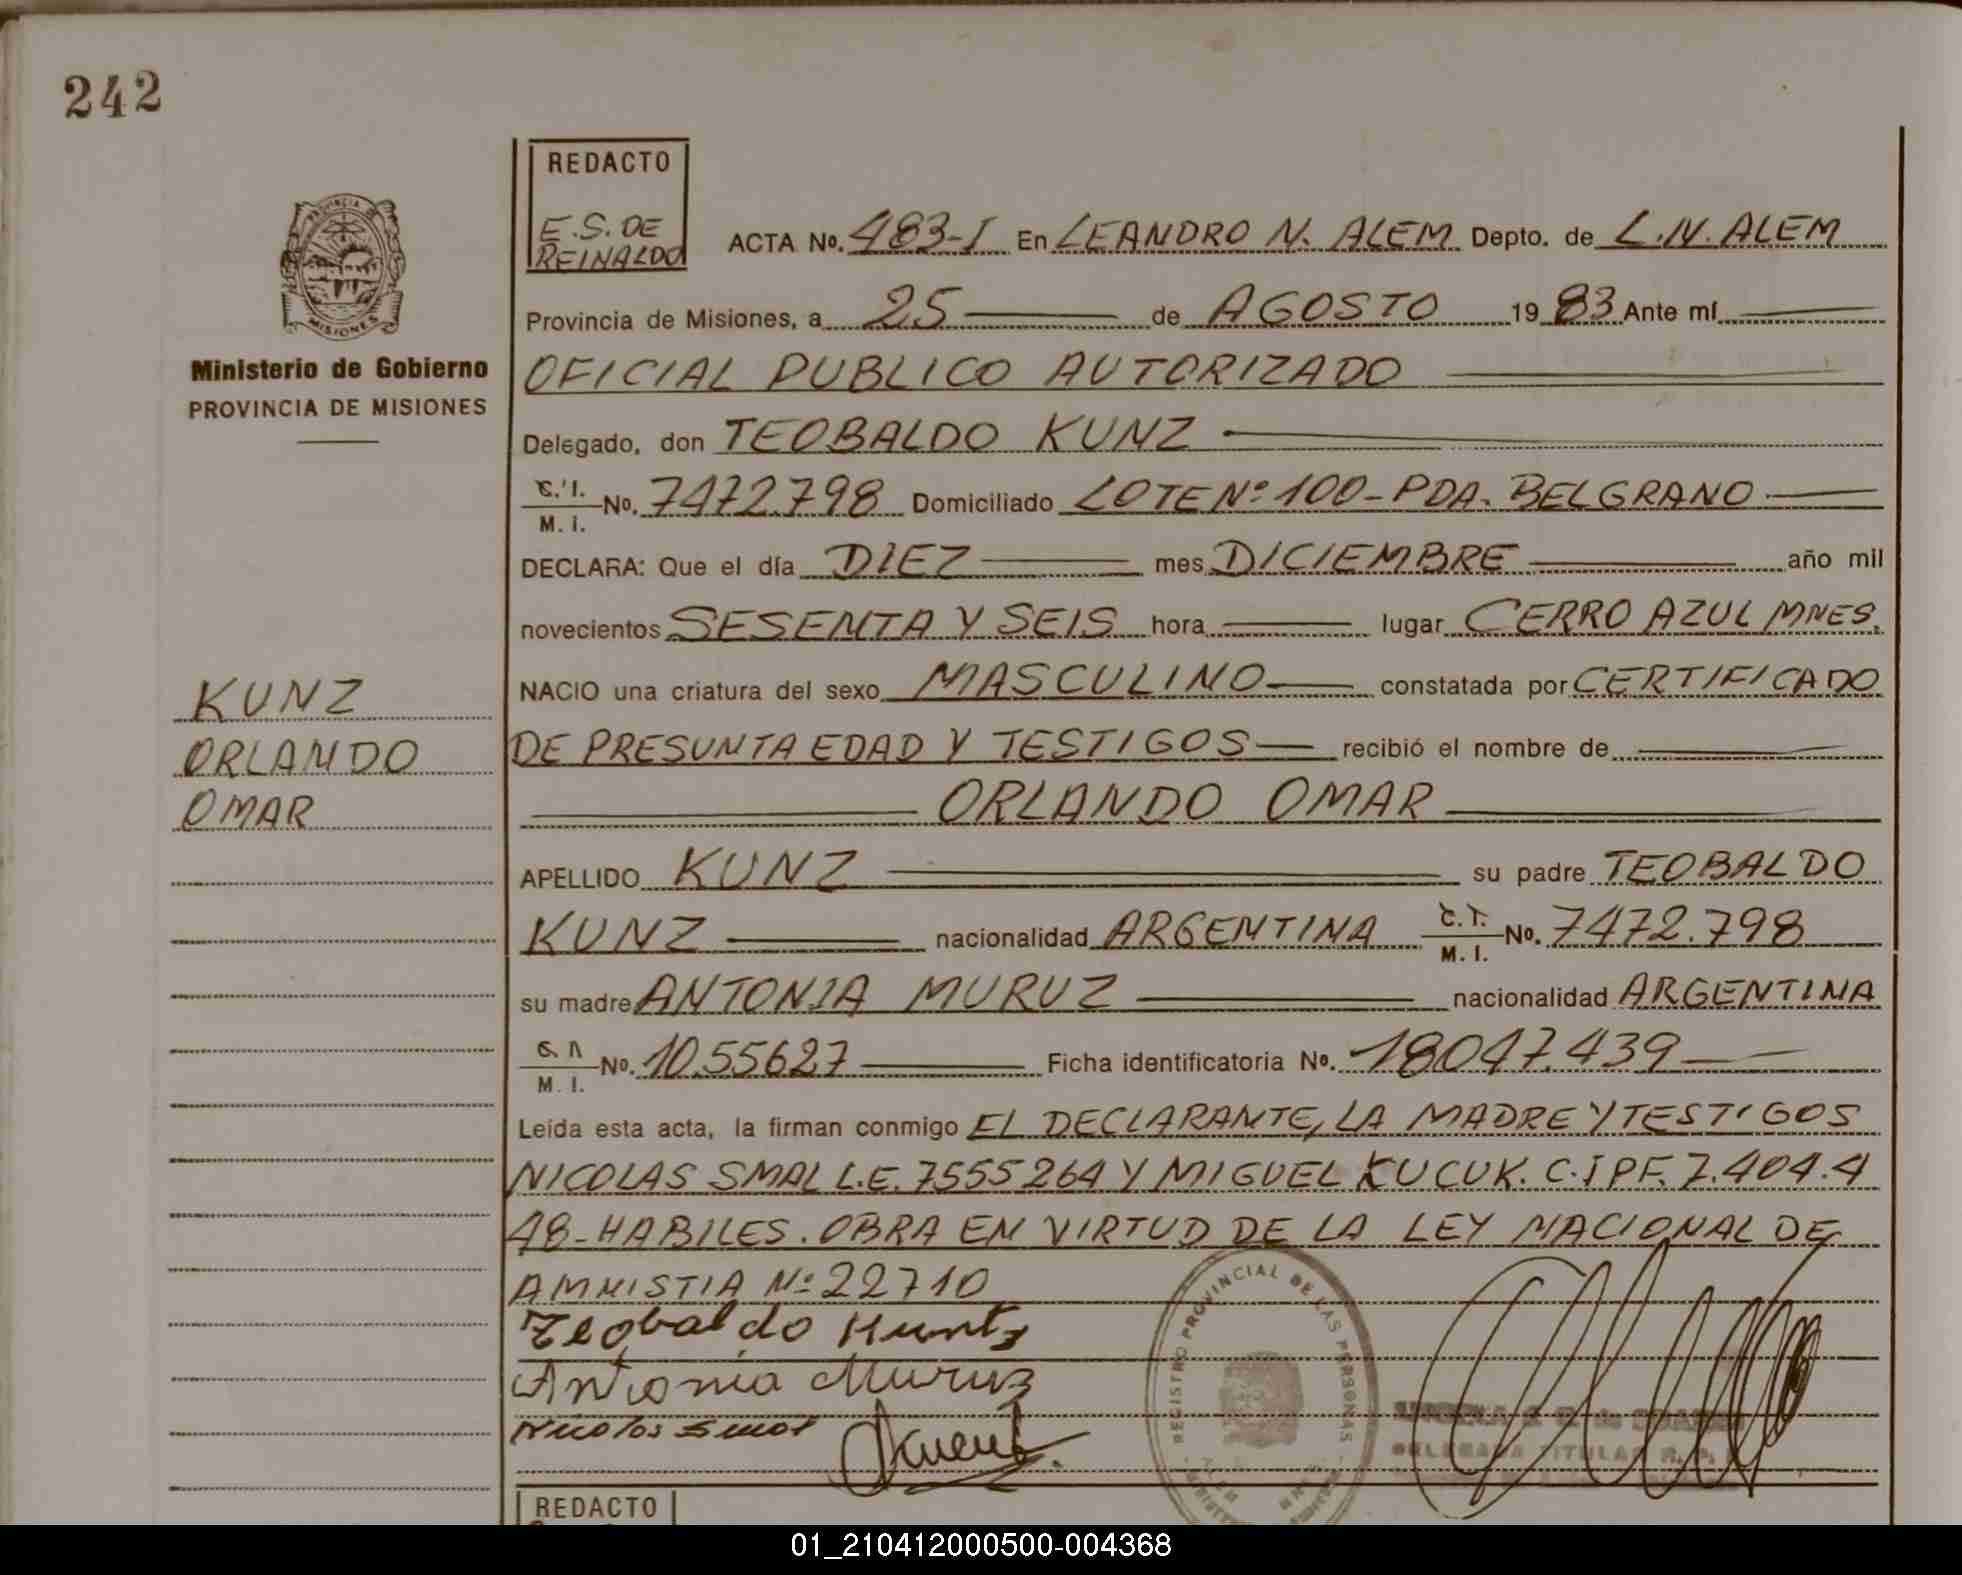 242
REDACTO
E.S. DE
REINALDO
ACTA No. 483-I En LEANDRO N. ALEM Depto. de L.N. ALEM
PROVINCIA DE
MISIONES
Provincia de Misiones, a 25 de AGOSTO 1983 Ante mí
Ministerio de Gobierno
PROVINCIA DE MISIONES
OFICIAL PUBLICO AUTORIZADO
Delegado, don TEOBALDO KUNZ
C.I.
M. I. No. 7472.798 Domiciliado LOTE Nº 100-PDA. BELGRANO
DECLARA: Que el día DIEZ mes DICIEMBRE año mil
novecientos SESENTA Y SEIS hora lugar CERRO AZUL MNES.
NACIO una criatura del sexo MASCULINO constatada por CERTIFICADO
DE PRESUNTA EDAD Y TESTIGOS recibió el nombre de
ORLANDO OMAR
KUNZ
ORLANDO
OMAR
APELLIDO KUNZ su padre TEOBALDO
KUNZ nacionalidad ARGENTINA C.I.
M. I. No. 7472.798
su madre ANTONIA MURUZ nacionalidad ARGENTINA
M. I. No. 10.55627 Ficha identificatoria No. 18047.439
Leída esta acta, la firman conmigo EL DECLARANTE, LA MADRE Y TESTIGOS
NICOLAS SMAL L.E. 7555264 Y MIGUEL KUCUK. C.I PF. 7.404.4
48-HABILES. OBRA EN VIRTUD DE LA LEY NACIONAL DE
AMNISTIA Nº 22710
Teobaldo Kuntz
Antonia Muruz
Nicolos Smol
REGISTRO PROVINCIAL DE LAS PERSONAS
DELEGADA TITULAR R.P.
REDACTO
01_210412000500-004368